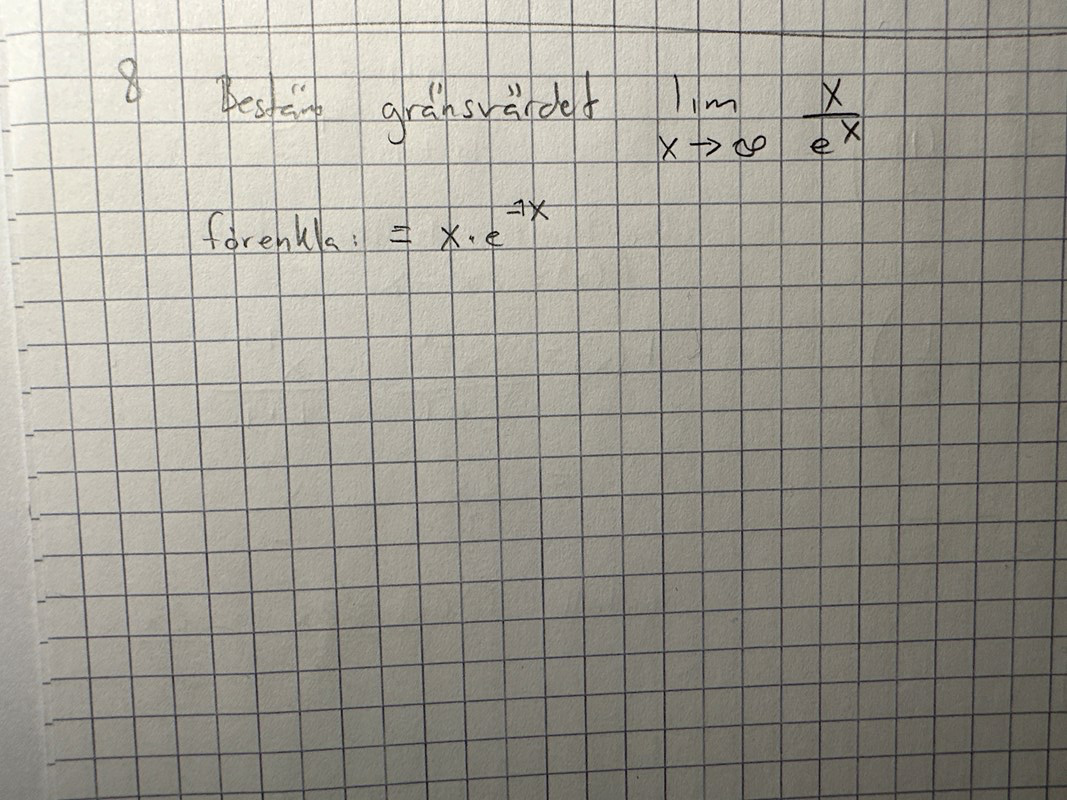 8 Bestäm gränsvärdet lim x→∞ x/e^x
förenkla: = x·e^-1x